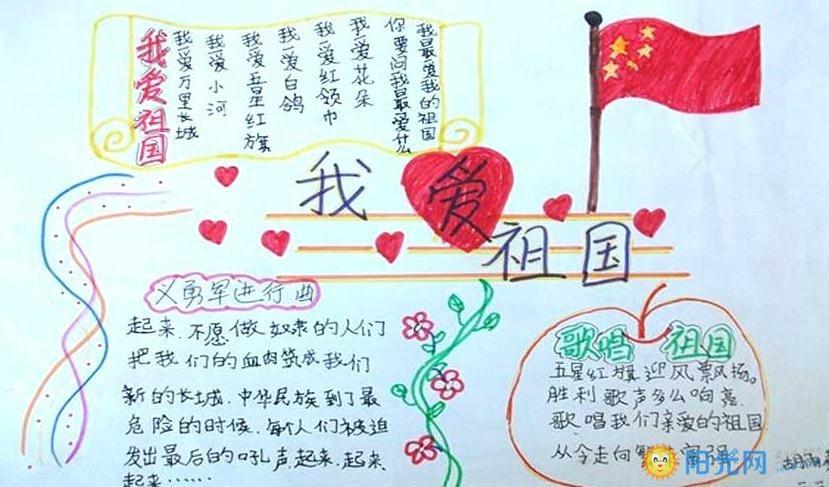 我爱祖国
我爱万里长城
我爱小河
我爱五星红旗
我爱白鸽
我爱红领巾
我爱花朵
你要问我最爱什么
我最爱我的祖国
我爱祖国
义勇军进行曲
起来.不愿做奴隶的人们
把我们的血肉筑成我们
新的长城.中华民族到了最
危险的时候.每个人们被迫
发出最后的吼声.起来.起来.
起来……
歌唱 祖国
五星红旗迎风飘扬。
胜利歌声多么响亮.
歌唱我们亲爱的祖国.
从今走向繁 富强
阳光网